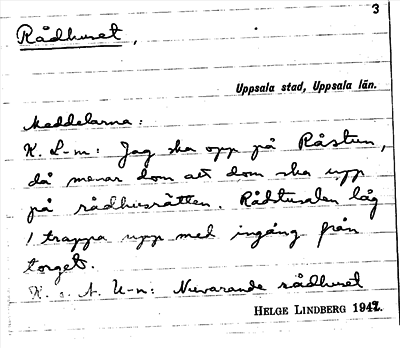 3
Rådhuset,
Uppsala stad, Uppsala län.
Meddelarna:
K. L-m: Jag ska opp på Råstun,
då menar dom att dom ska upp
på rådhusrätten. Rådstusalen låg
1 trappa upp med ingång från
torget.
K. o. A. U-n: Nuvarande rådhuset
HELGE LINDBERG 1942.